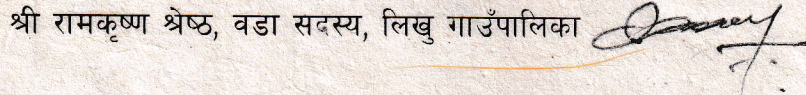 श्री रामकृष्ण श्रेष्ठ, वडा सदस्य, लिखु गाउँपालिका